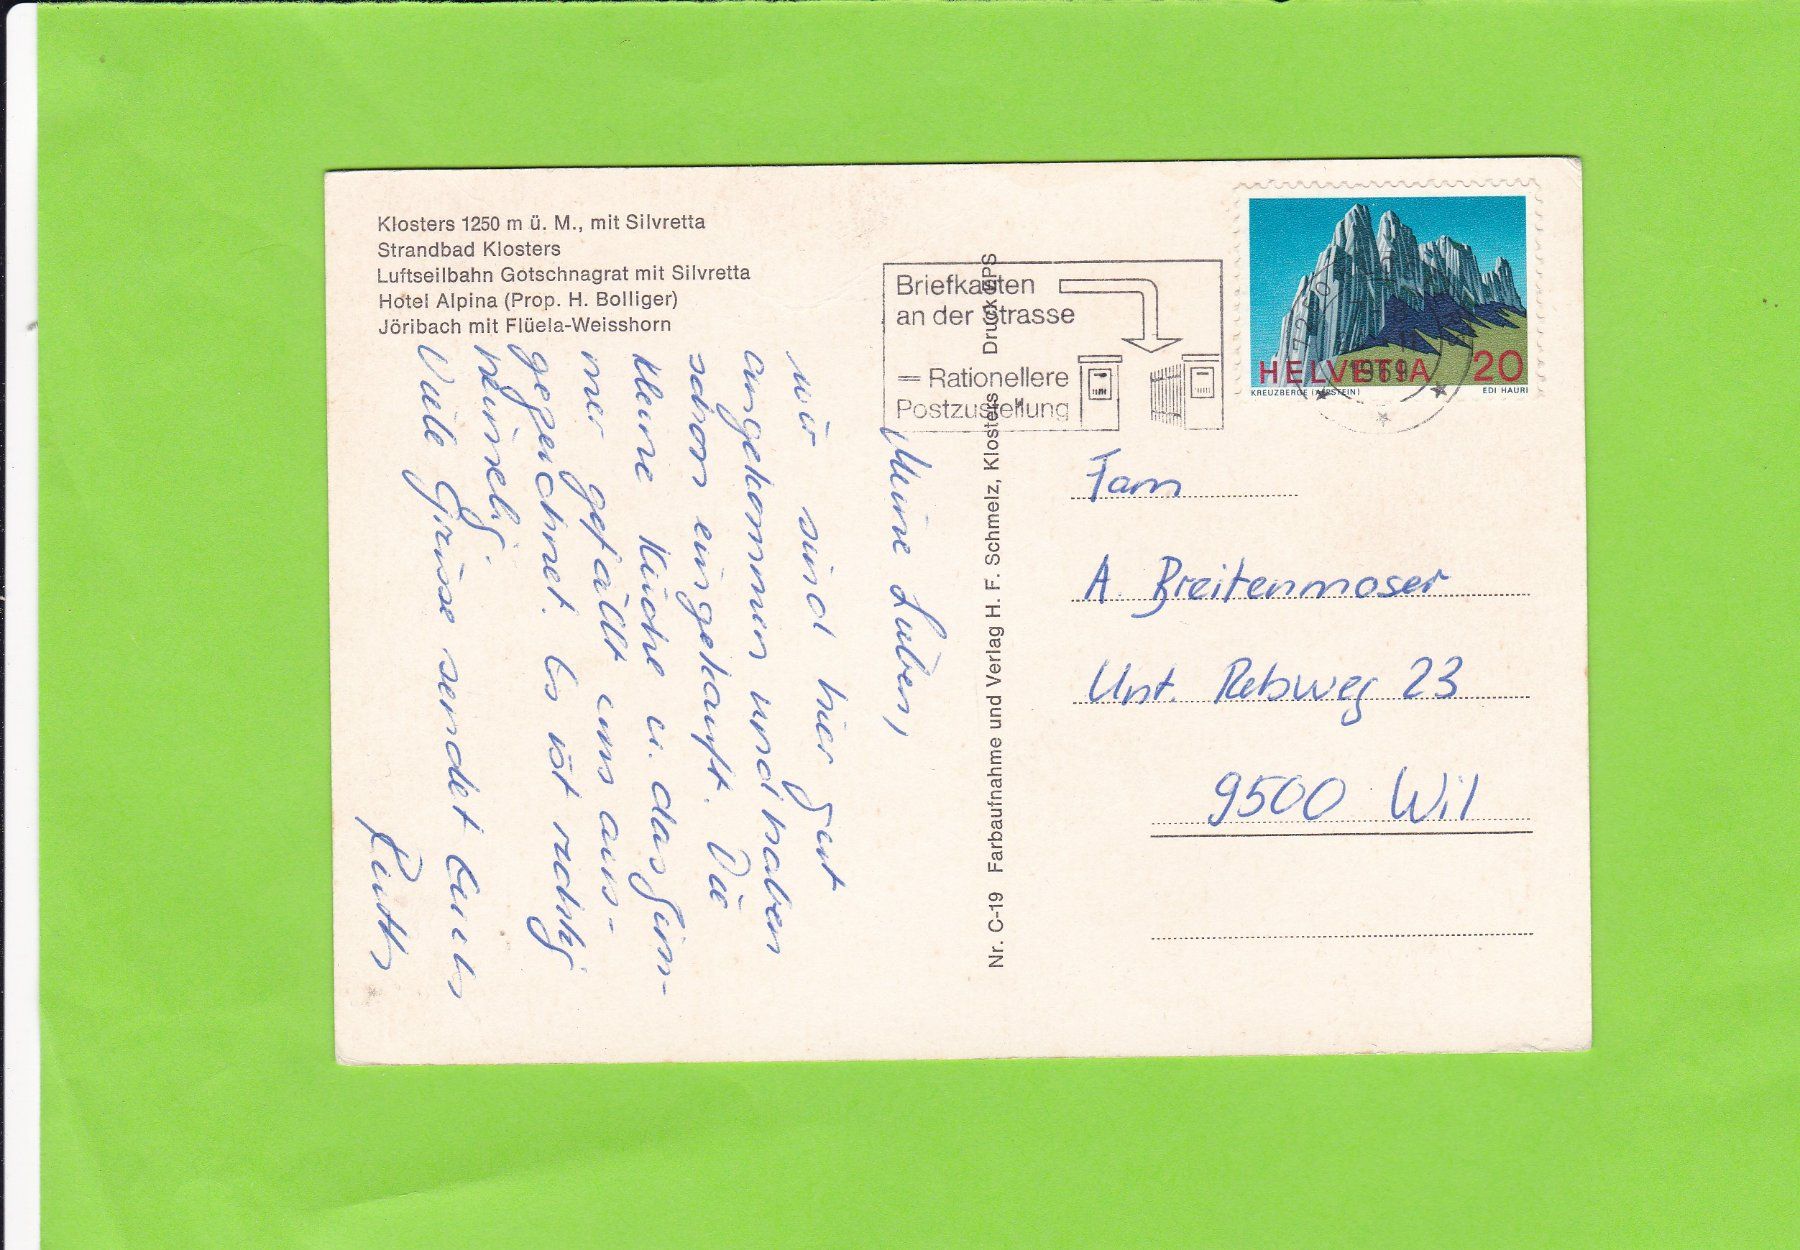 Klosters 1250 m ü. M., mit Silvretta
Strandbad Klosters
Luftseilbahn Gotschnagrat mit Silvretta
Hotel Alpina (Prop. H. Bolliger)
Jöribach mit Flüela-Weisshorn
Meine Lieben,
wir sind hier gut
angekommen und haben
schon eingekauft. Die
kleine Küche u. das Zim-
mer gefällt uns aus-
gezeichnet. Es ist richtig
heimelig.
Viele Grüsse sendet Euch
Ruth
Nr. C-19 Farbaufnahme und Verlag H. F. Schmelz, Klosters Druck GPS
Briefkasten
an der Strasse
= Rationellere
Postzustellung
HELVETIA 20
KREUZBERGE (ALPSTEIN) EDI HAURI
7250
1969
Fam
A. Breitenmoser
Unt. Rebweg 23
9500 Wil